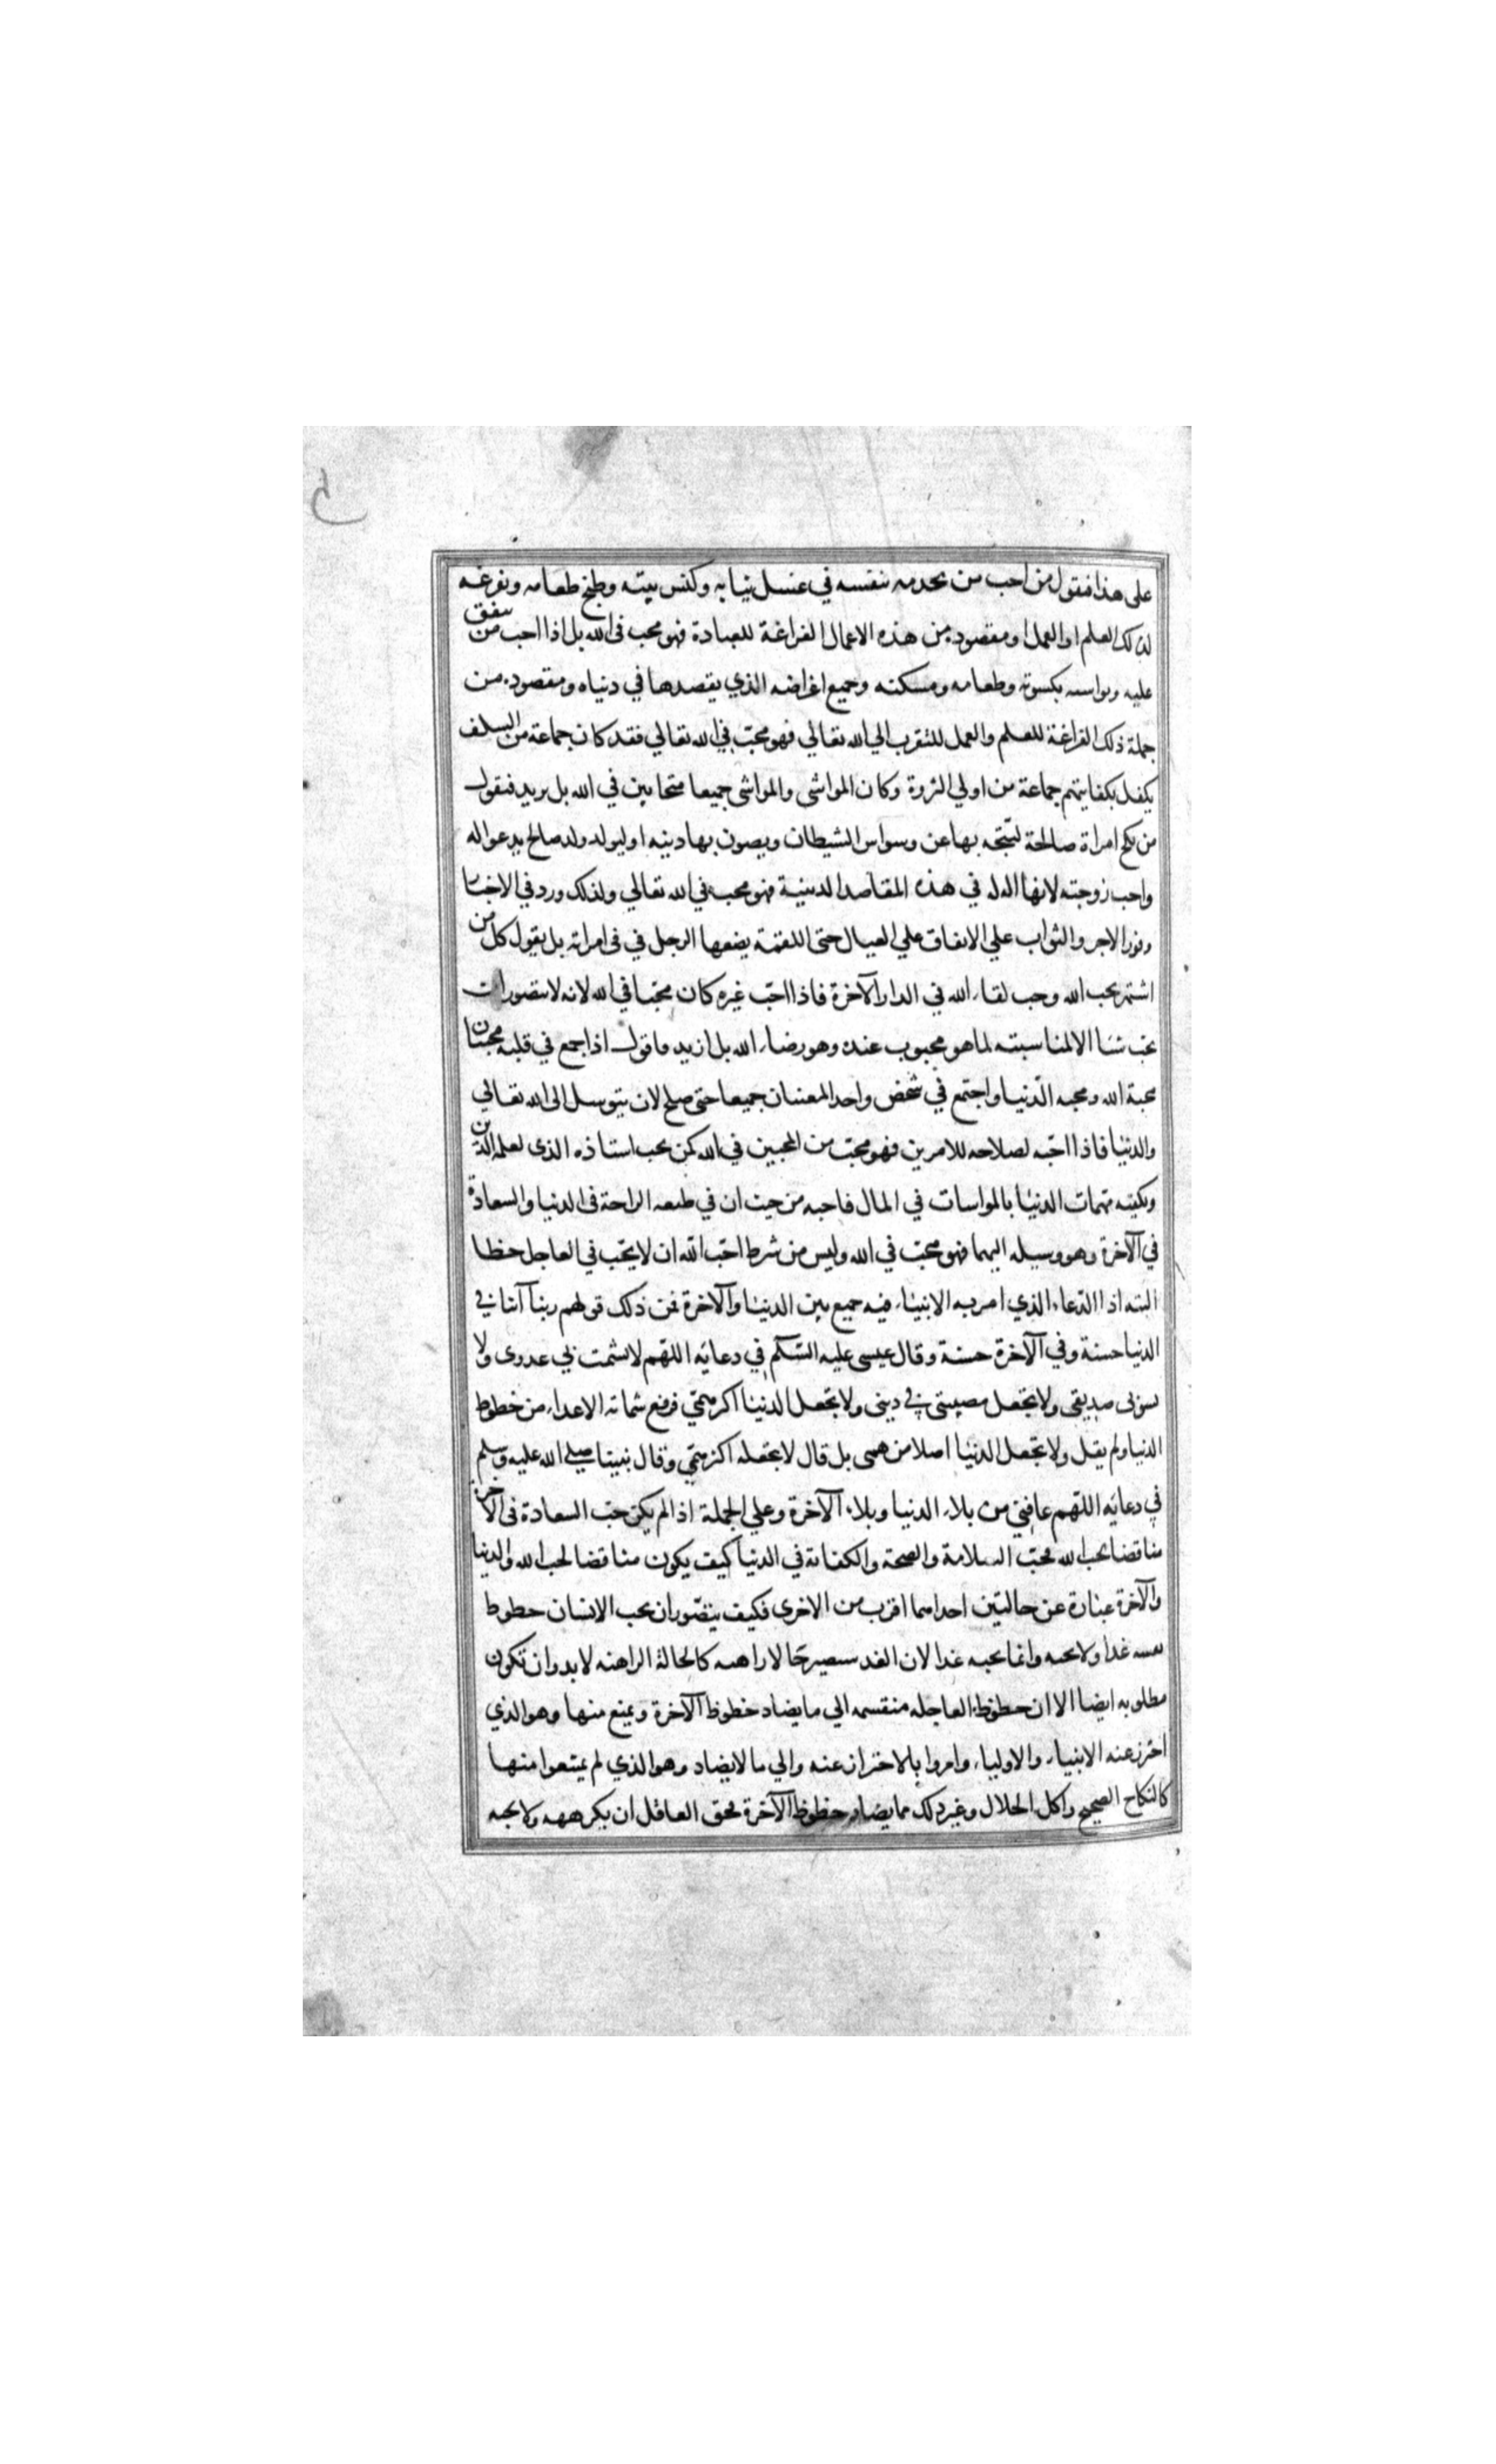 على هذا فنقول من احب من يخدمه بنفسه في غسل ثيابه وكنس بيته وطبخ طعامه وتفرغه
لذلك العلم او العمل ومقصوده من هذه الاعمال الفراغة للعبادة فهو محب في الله بل اذا احب من ينفق
عليه ويواسيه بكسوته وطعامه ومسكنه وجميع اغراضه الذي يقصدها في دنياه ومقصوده من
جملة ذلك الفراغة للعلم والعمل للتقرب الي الله تعالي فهو محب في الله تعالي فقد كان جماعة من السلف
يكفل بكفايتهم جماعة من اولي الثروة وكان المواشي والمواشى جميعا متحابين في الله بل يريد فنقول
من نكح امراة صالحة ليتجه بها عن وسواس الشيطان ويصون بها دينه او ليولد ولد صالح يدعو اله
واحب زوجته لانها اله له في هذه المقاصد الدينية فهو محب في الله تعالي ولذلك ورد في الاخبار
وفور الاجر والثواب علي الانفاق علي العيال حتى اللقمة يضعها الرجل في في امراته بل يقول كل من
اشتهر بحب الله وحب لقاء الله في الدار الآخرة فاذا احب غيره كان محبا في الله لانه لا يتصور ان
يحب شيا الا لمناسبته لما هو محبوب عنده وهو رضاء الله بل ازيد واقول اذا جمع في قلبه محبتان
محبة الله ومحبه الدنيا واجتمع في شخص واحد المعنيان جميعا حتى صلح لان يتوسل الى الله تعالي
والدنيا فاذا احبه لصلاحه للامرين فهو محب من المحبين في الله كمن يحب استاذه الذى يعلمه الدين
ويكفيه مهمات الدنيا بالمواسات في المال فاحبه من حيث ان في طبعه الراحة في الدنيا والسعادة
في الآخرة وهو وسيله اليهما فهو محب في الله وليس من شرط احب الله ان لا يحب في العاجل حظا
البته اذا الدعاء الذي امر به الانبياء فيه جميع بين الدنيا والآخرة فمن ذلك قولهم ربنا آتنا في
الدنيا حسنة وفي الآخرة حسنة وقال عيسى عليه السلام في دعائه اللهم لا تشمت بي عدوى ولا
تسؤبى صديقى ولا تجعل مصيبتى في دينى ولا تجعل الدنيا اكبر همي فرفع شماتة الاعداء من حظوظ
الدنيا ولم يقل ولا تجعل الدنيا اصلا من همى بل قال لا تجعله اكبر همي وقال نبينا صلي الله عليه وسلم
في دعائه اللهم عافني من بلاء الدنيا وبلاء الآخرة وعلي الجملة اذا لم يكن حب السعادة في الآخرة
مناقضا لحب الله فحب السلامة والصحة والكفاية في الدنيا كيف يكون مناقضا لحب الله والدنيا
والآخرة عبارة عن حالتين احداهما اقرب من الاخرى فكيف يتصور ان يحب الانسان حظوظ
نفسه غدا ولا يحبه وانما يحبه غدا لان الغد سيصير حالا راهنه كالحالة الراهنه لا بد وان تكون
مطلوبه ايضا الا ان حظوظ العاجله منقسمه الي ما يضاد حظوظ الآخرة ويمنع منها وهو الذي
احترز عنه الانبياء والاولياء وامروا بالاحتراز عنه والي ما لا يضاد وهو الذي لم يمتنعوا منها
كالنكاح الصحيح واكل الحلال وغير ذلك مما يضاد حظوظ الآخرة فحق العاقل ان يكرهه ولا يحبه